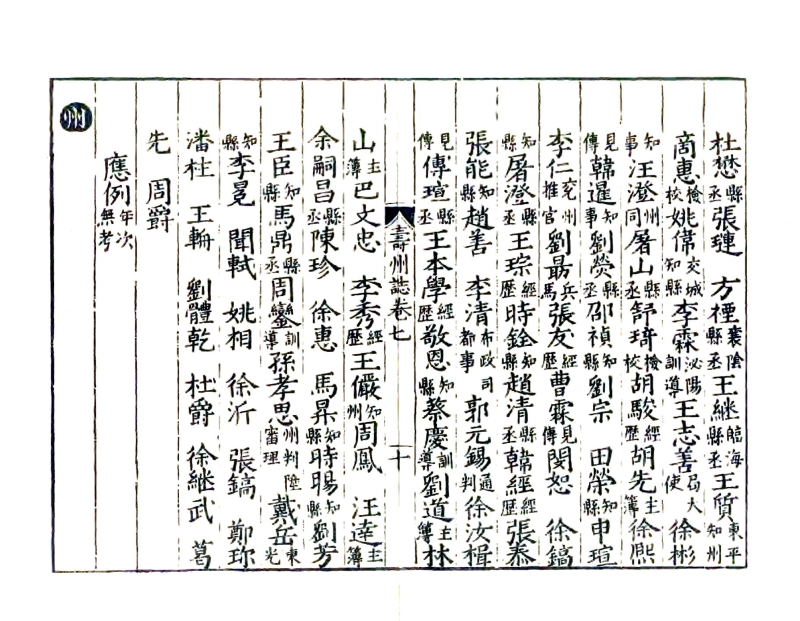 杜懋縣丞張璉 方襄陰縣丞王継臨海縣丞王質東平知州
商惠檢校姚偉交城知縣李霖泌陽訓導王志善局大使徐彬
知事汪澄州同屠山縣丞舒琦檢校胡駿經歷胡先主簿徐熈
見傳韓暹知事劉熒縣丞邵禎知縣劉宗 田榮知縣申瑄
李仁兗州推官劉勗兵馬張友經歷曹霖見傳閔恕 徐鎬
知縣屠澄縣丞王琮經歷時銓知縣趙清縣丞韓經經歷張泰
張能知縣趙善 李清布政司都事郭元錫通判徐汝楫
見傳傅瑄縣丞王本學經歷敬恩知縣蔡慶訓導劉道主簿林
壽州誌卷七 十
山主簿巴文忠 李秀經歷王儼知州周鳳 汪逵主簿
余嗣昌縣丞陳珍 徐惠 馬昇知縣時暘知縣劉芳
王臣知縣馬鼎縣丞周鑾訓導孫孝思州判陞審理戴岳東光
知縣李冕 聞軾 姚相 徐沂 張鎬 鄭珎
潘柱 王輈 劉體乾 杜爵 徐継武 葛
先 周爵
應例年次無考
州